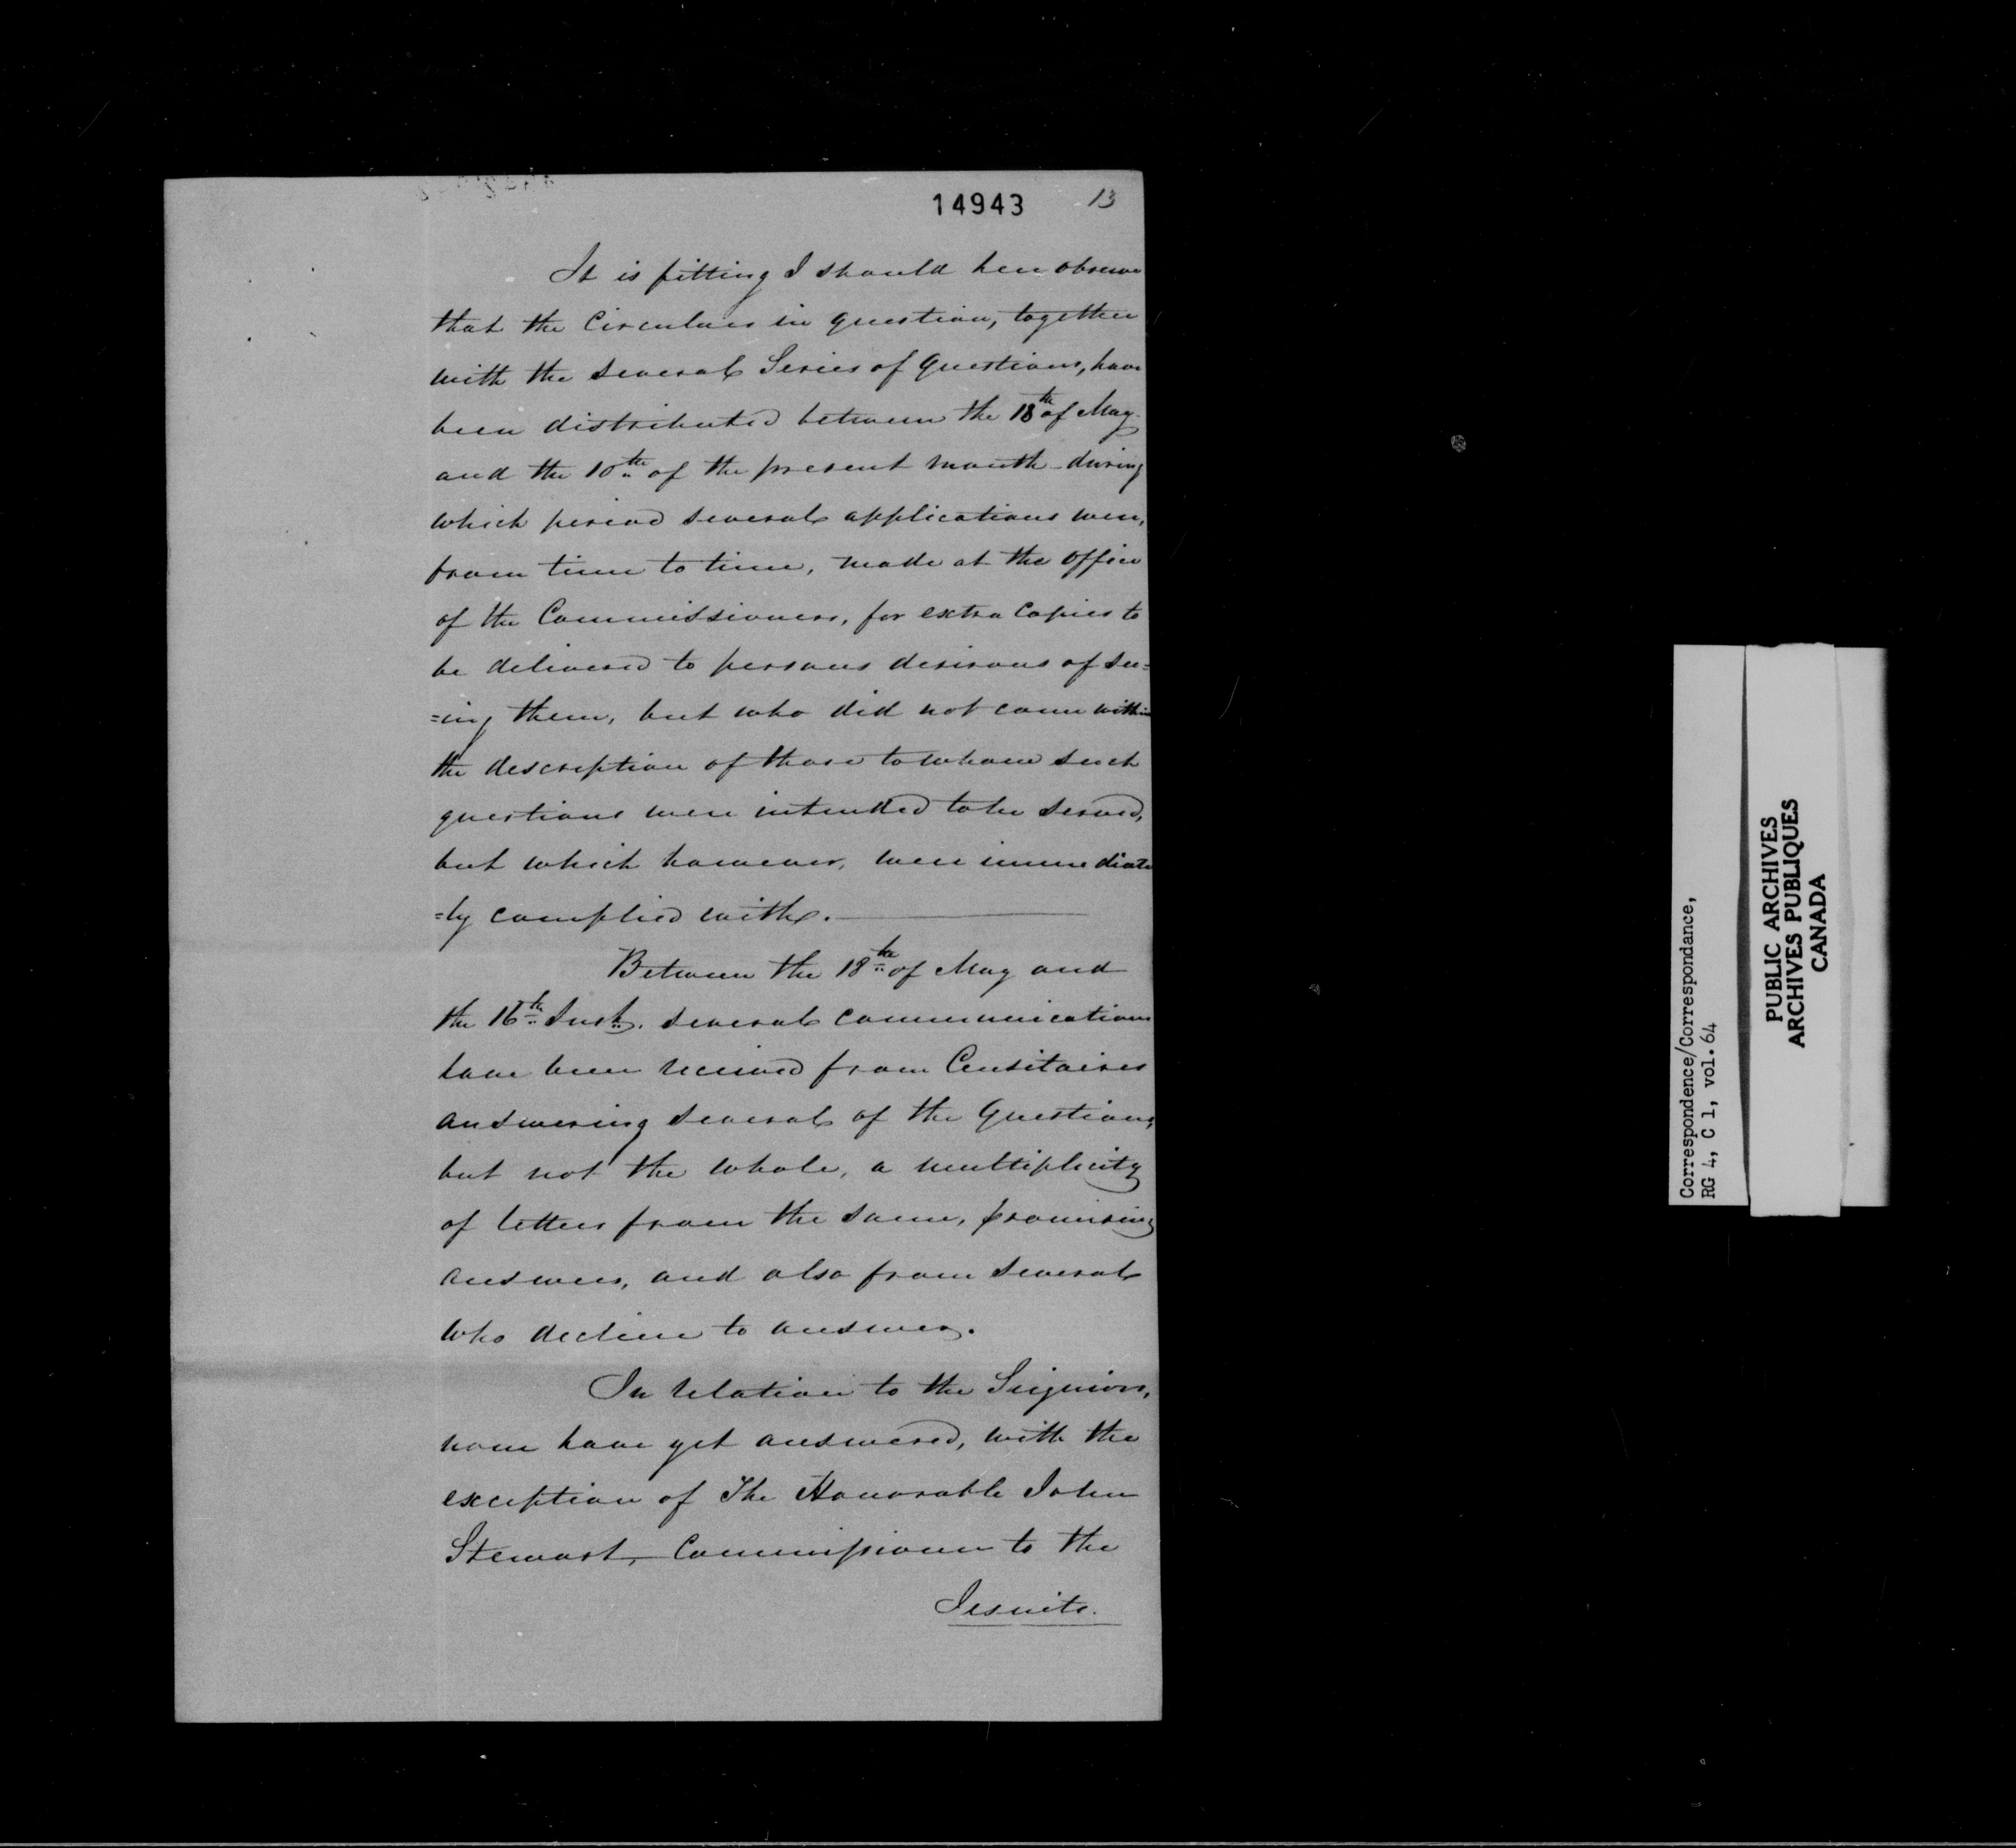 14943 13
It is fitting I should here observe
that the Circulars in question, together
with the several Series of Questions, have
been distributed between the 18th of May
and the 10th of the present month - during
which period several applications were,
from time to time, made at the office
of the Commissioners, for extra Copies to
be delivered to persons desirous of see=
=ing them, but who did not come within
the description of those to whom such
questions were intended to be served,
but which however, were immediate
=ly complied with.
Between the 18th of May and
the 16th Inst. several communications
have been received from Censitaires
answering several of the Questions,
but not the whole, a multiplicity
of letters from the same, promising
answers, and also from several
who decline to answer.
In relation to the Seigniors,
none have yet answered, with the
exception of The Honorable John
Stewart, Commissioner to the
Jesuits.
Correspondence/Correspondance,
RG 4, C 1, vol. 64
PUBLIC ARCHIVES
ARCHIVES PUBLIQUES
CANADA